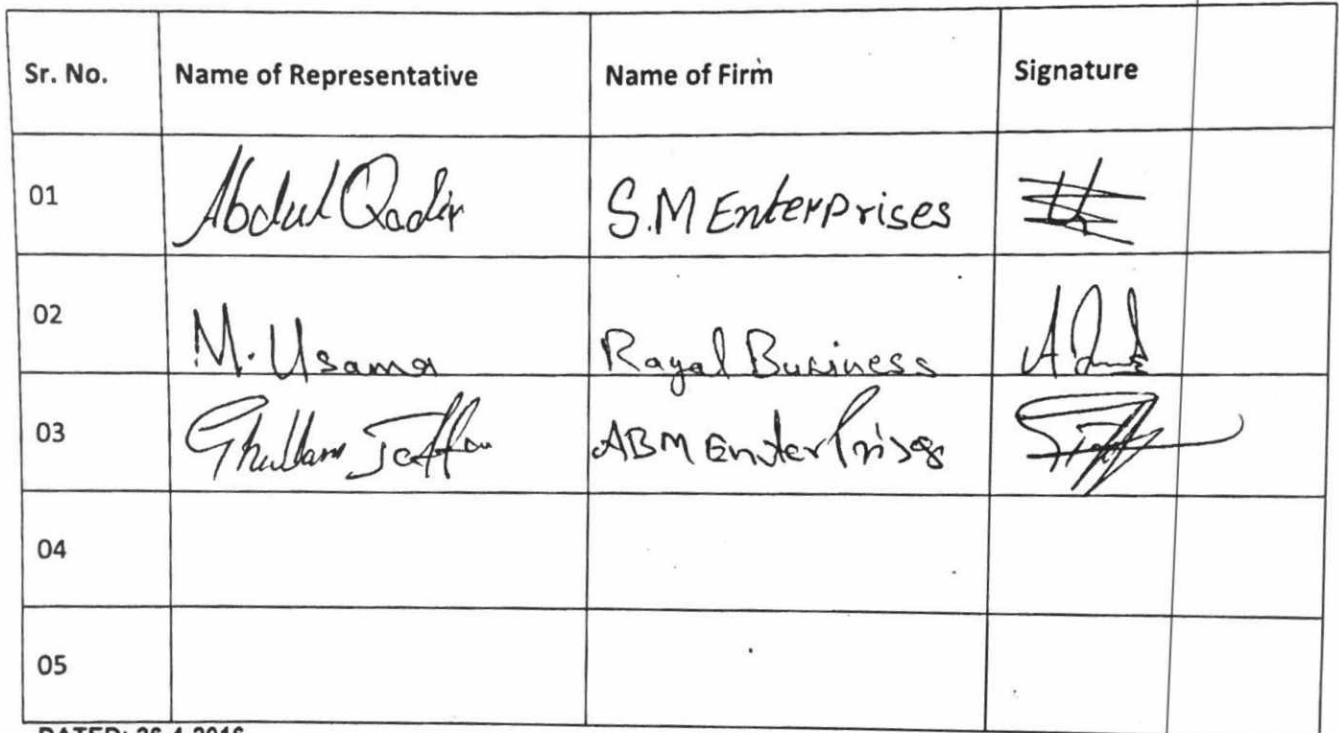 Sr. No. Name of Representative Name of Firm Signature
01 Abdul Qadir S.M Enterprises
02 M. Usama Rayal Business
03 Ghullam Jaffar ABM Enterprises
04
05
DATED: 26-4-2016